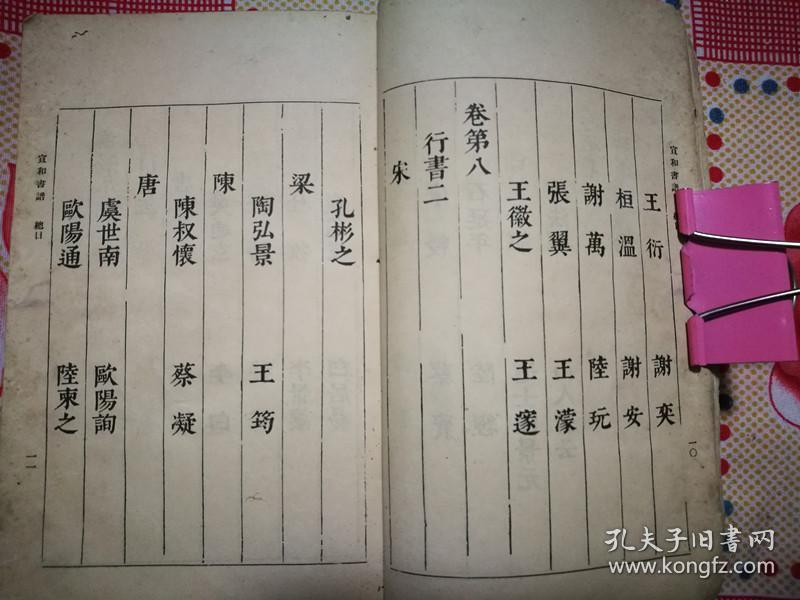 王衍 謝奕
桓溫 謝安
謝萬 陸玩
張翼 王濛
王徽之 王邃
卷第八
行書二
宋
一〇
孔彬之
梁
陶弘景 王筠
陳
陳叔懷 蔡凝
唐
虞世南 歐陽詢
歐陽通 陸柬之
宣和書譜 總目
一一
孔夫子旧书网
kongfz.com